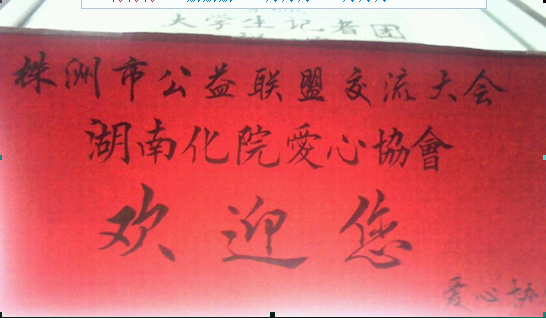 大学生记者团
株洲市公益联盟交流大会
湖南化院愛心協會
欢迎您
爱心协